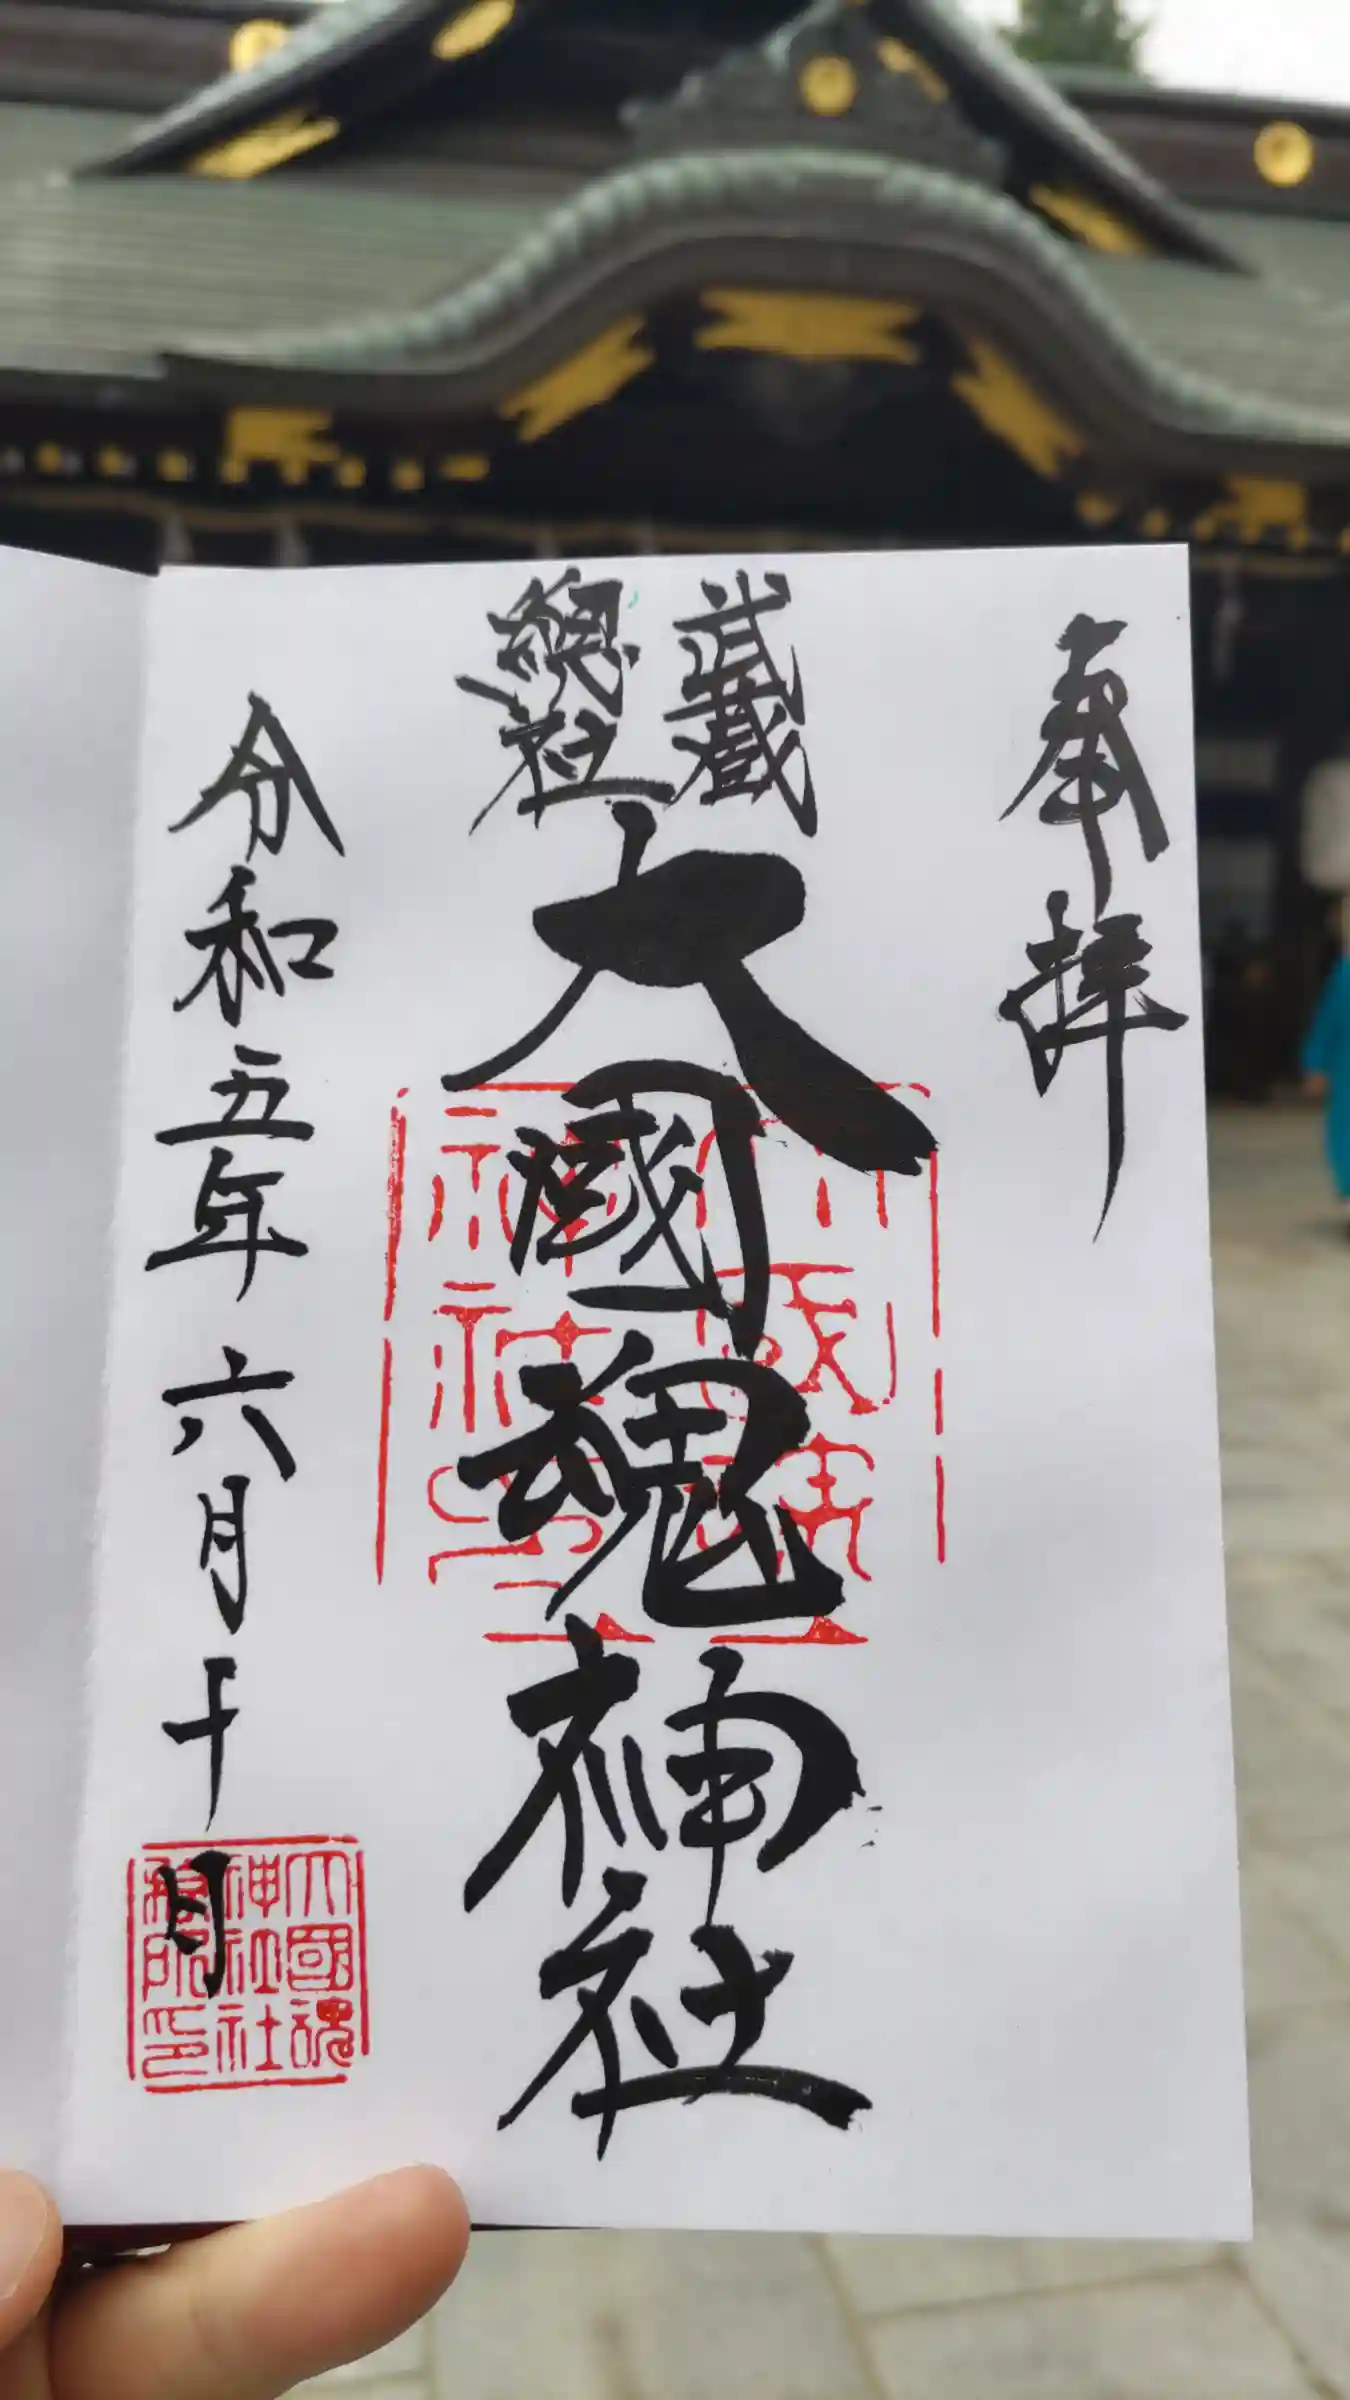 奉拝
武藏
總社
大國魂神社
令和五年六月十日
大國魂
神社社
務所印